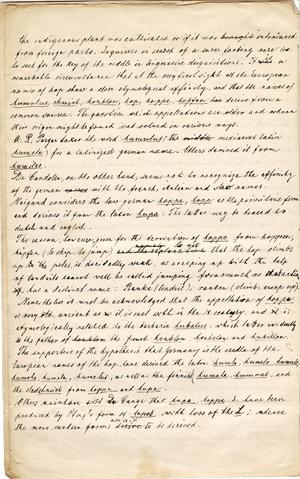 the indigenous plant was cultivated or if it was brought introduced
from foreign parts. Inquirers in search of a surer footing were led
to seek for the key of the riddle in linguistic disquisitions. It was a
remarkable circumstance that at the very first sight all the European
names of hop show a close etymological affinity, and that the names of
humulus, chmiel, houblon, hop, hoppe, hopfen has derive from a
common source. The question which appellations are older and where
their origin might be found was solved in various ways.
takes the word humulus the mediaeval latin
humela for a latinized german name. Others derived it from
humidus.
De Candolle, on the other hand, seems not to recognize the affinity
of the german names with the french, italian and slav names.
Weigand considers the low german hoppe, hopp as the primitive form
and derives it from the latin hupa. The latter may be traced to
dutch and english.
The reason, however, given for the derivation of hoppe from hoppen,
hüpfen (to hop, to jump) that the hop climbs
up the poles, is decidedly weak, as creeping up with the help
of tendrils cannot well be called jumping forasmuch as
has a distinct name: Ranke (tendril), ranken (climb, creep up).
Nonetheless it must be acknowledged that the appellation of hoppe
is very old ancient as it is met with in the century. and it is
etymologically related to the barbaric hubalus, which latter evidently
is the father of houblon the french houblon and hubillon.
The supporters of the hypothesis that germany is the cradle of the
European names of the hop have derived the latin humlo, humolo, humele,
humolo, humela, humelus, as well as the finnish humala humuus, and
the from hoppe and hupa.
Others maintain with Du Cange that hupa, hoppe &c have been
produced by Pliny's form of lupus with loss of the L; whence
the more modern forms are said to be derived.